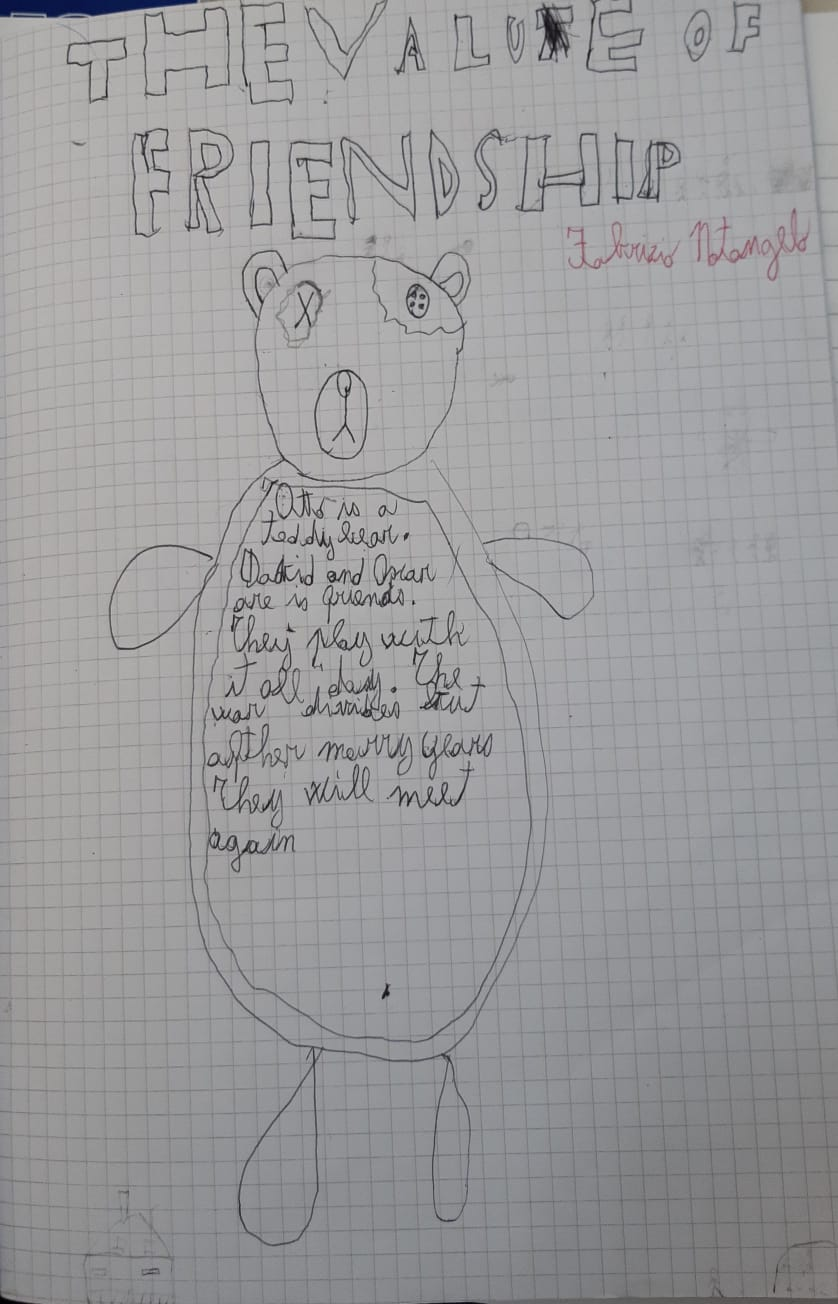 THE VALUE OF
FRIENDSHIP
Fabrizio Notangelo
Otto is a
teddy bear.
David and Oscar
are is friends.
They play with
it all day. The
war divides but
after merry years
They will meet
again